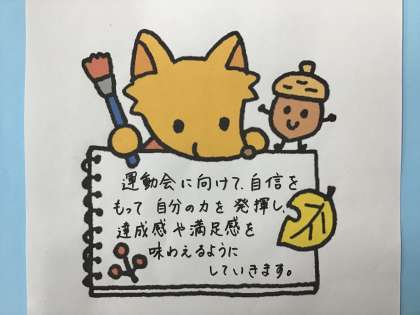 運動会に向けて、自信を
もって自分の力を発揮し、
達成感や満足感を
味わえるように
していきます。